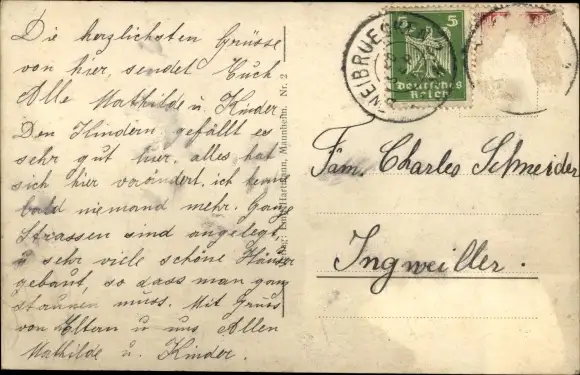 Die herzlichsten Grüsse
von hier, sendet Euch
Alle Mathilde u. Kinder
Den Kindern gefällt es
sehr gut hier, alles hat
sich hier verändert, ich kenn
bald niemand mehr. Ganze
Strassen sind angelegt,
u sehr viele schöne Häuser
gebaut, so dass man ganz
staunen muss. Mit Gruss
von Eltern u uns Allen
Mathilde u. Kinder.
Hartmann, Mannheim. Nr. 2
5 5
Deutsches
Reich
Fam. Charles Schneider
Ingweiller.